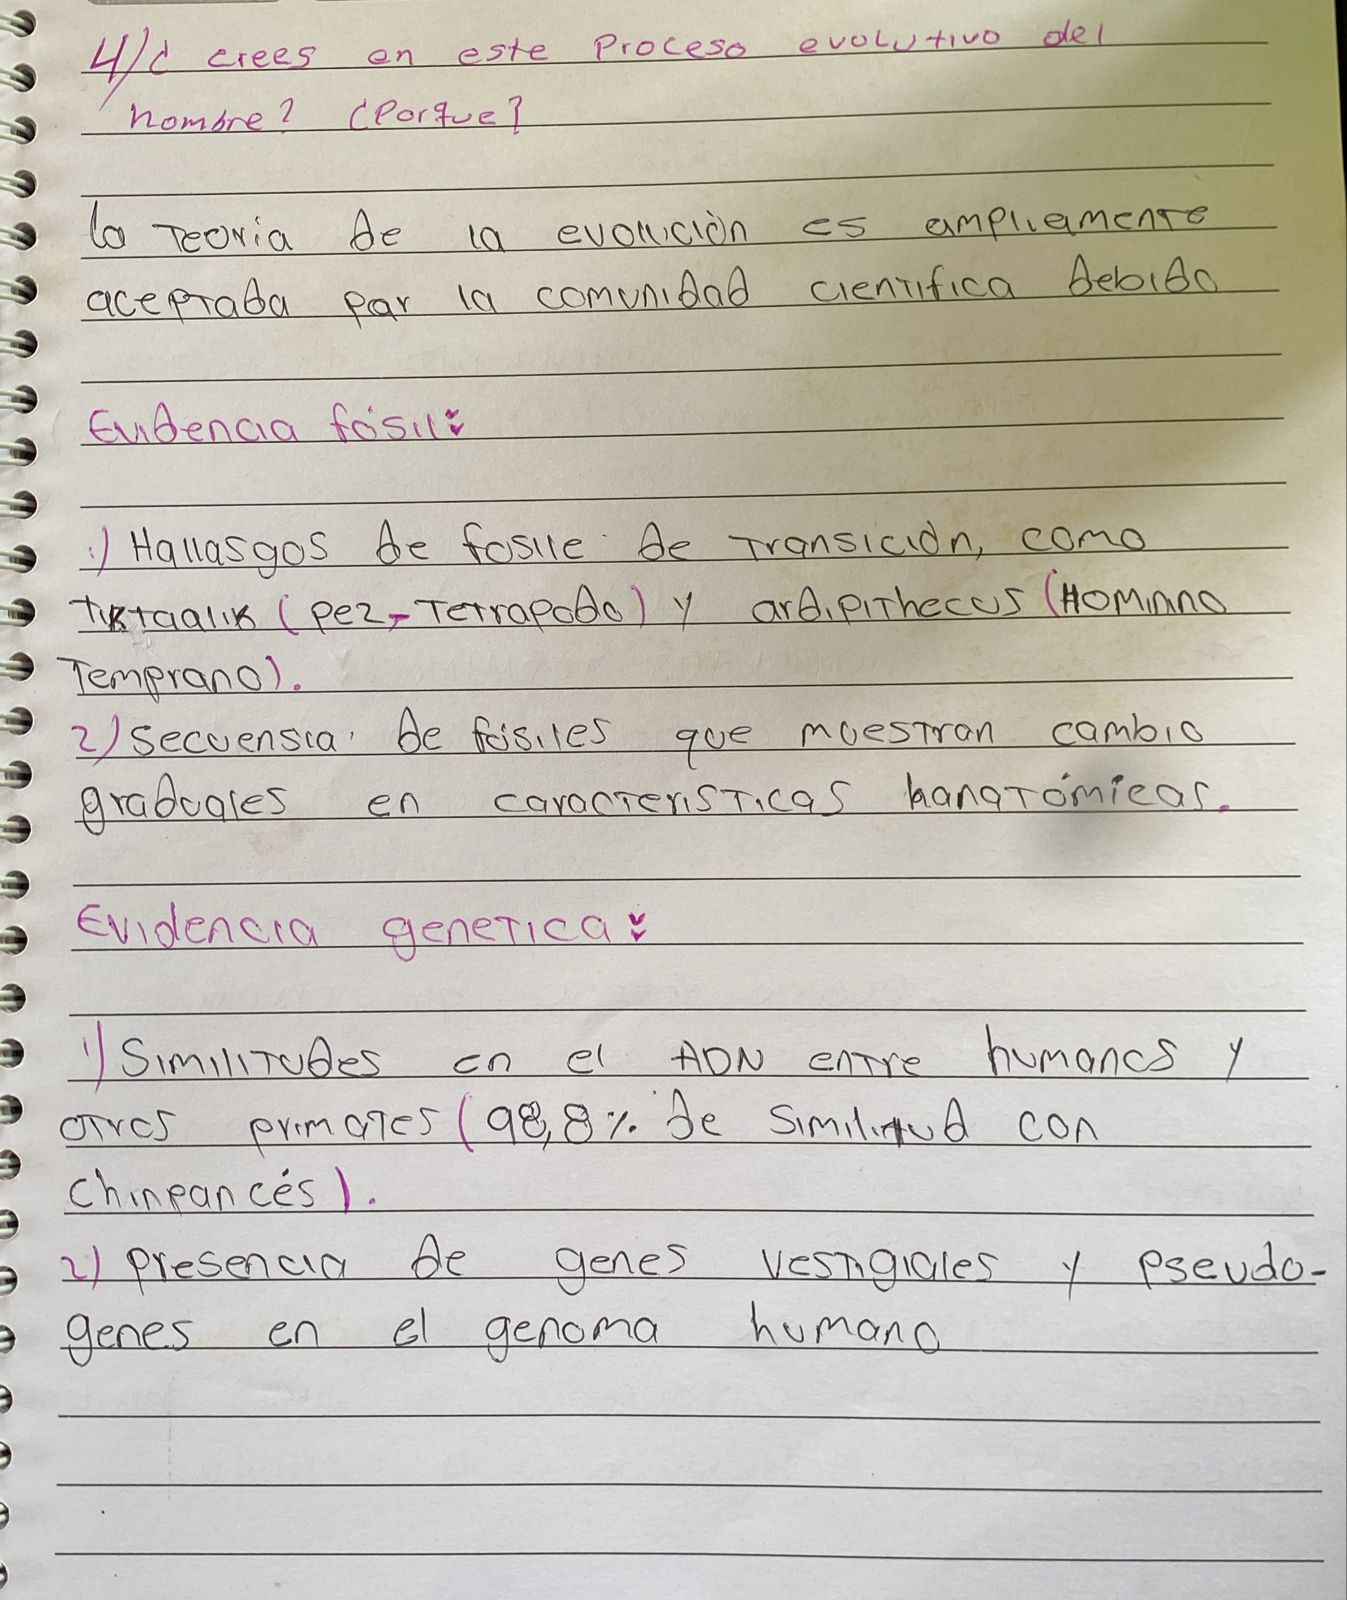 4/¿ crees en este Proceso evolutivo del
hombre? ¿Porque?
la teoria de la evolución es ampliamente
aceptada por la comunidad cientifica debido
Evidencia fósil:
1) Hallasgos de fosile de transición, como
Tiktaalik (pez-Tetrapodo) y ardipithecus (Hominino
Temprano).
2) secuensia de fósiles que muestran cambio
graduales en caracteristicas hanatómicas.
Evidencia genetica:
1) Similitudes en el ADN entre humanos y
otros primates (98,8% de similitud con
chinpancés).
2) presencia de genes vestigiales y pseudo-
genes en el genoma humano